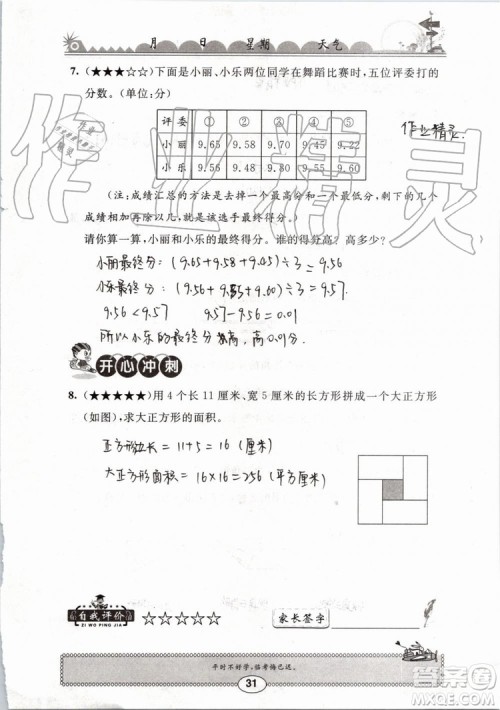 月 日 星期 天气
7. (★★★☆☆)下面是小丽、小乐两位同学在舞蹈比赛时,五位评委打的
分数。(单位:分)
评委 ① ② ③ ④ ⑤
小丽 9.65 9.58 9.70 9.45 9.22
小乐 9.55 9.60
作业精灵
(注:成绩汇总的方法是去掉一个最高分和一个最低分,剩下的几个
成绩相加再除以几,就是该选手最终得分。)
请你算一算,小丽和小乐的最终得分。谁的得分高?高多少?
小丽最终分:(9.65+9.58+9.45)÷3=9.56
小乐最终分:(9.56+9.55+9.60)÷3=9.57
9.56<9.57 9.57-9.56=0.01
所以小乐的最终分高,高0.01分。
开心冲刺
8. (★★★★★)用4个长11厘米、宽5厘米的长方形拼成一个大正方形
(如图),求大正方形的面积。
正方形边长=11+5=16(厘米)
大正方形面积=16×16=256(平方厘米)
自我评价
ZI WO PING JIA
☆☆☆☆☆
家长签字
平时不好学,临考悔已迟。
31
答案圈
MXQE.COM
作业精灵